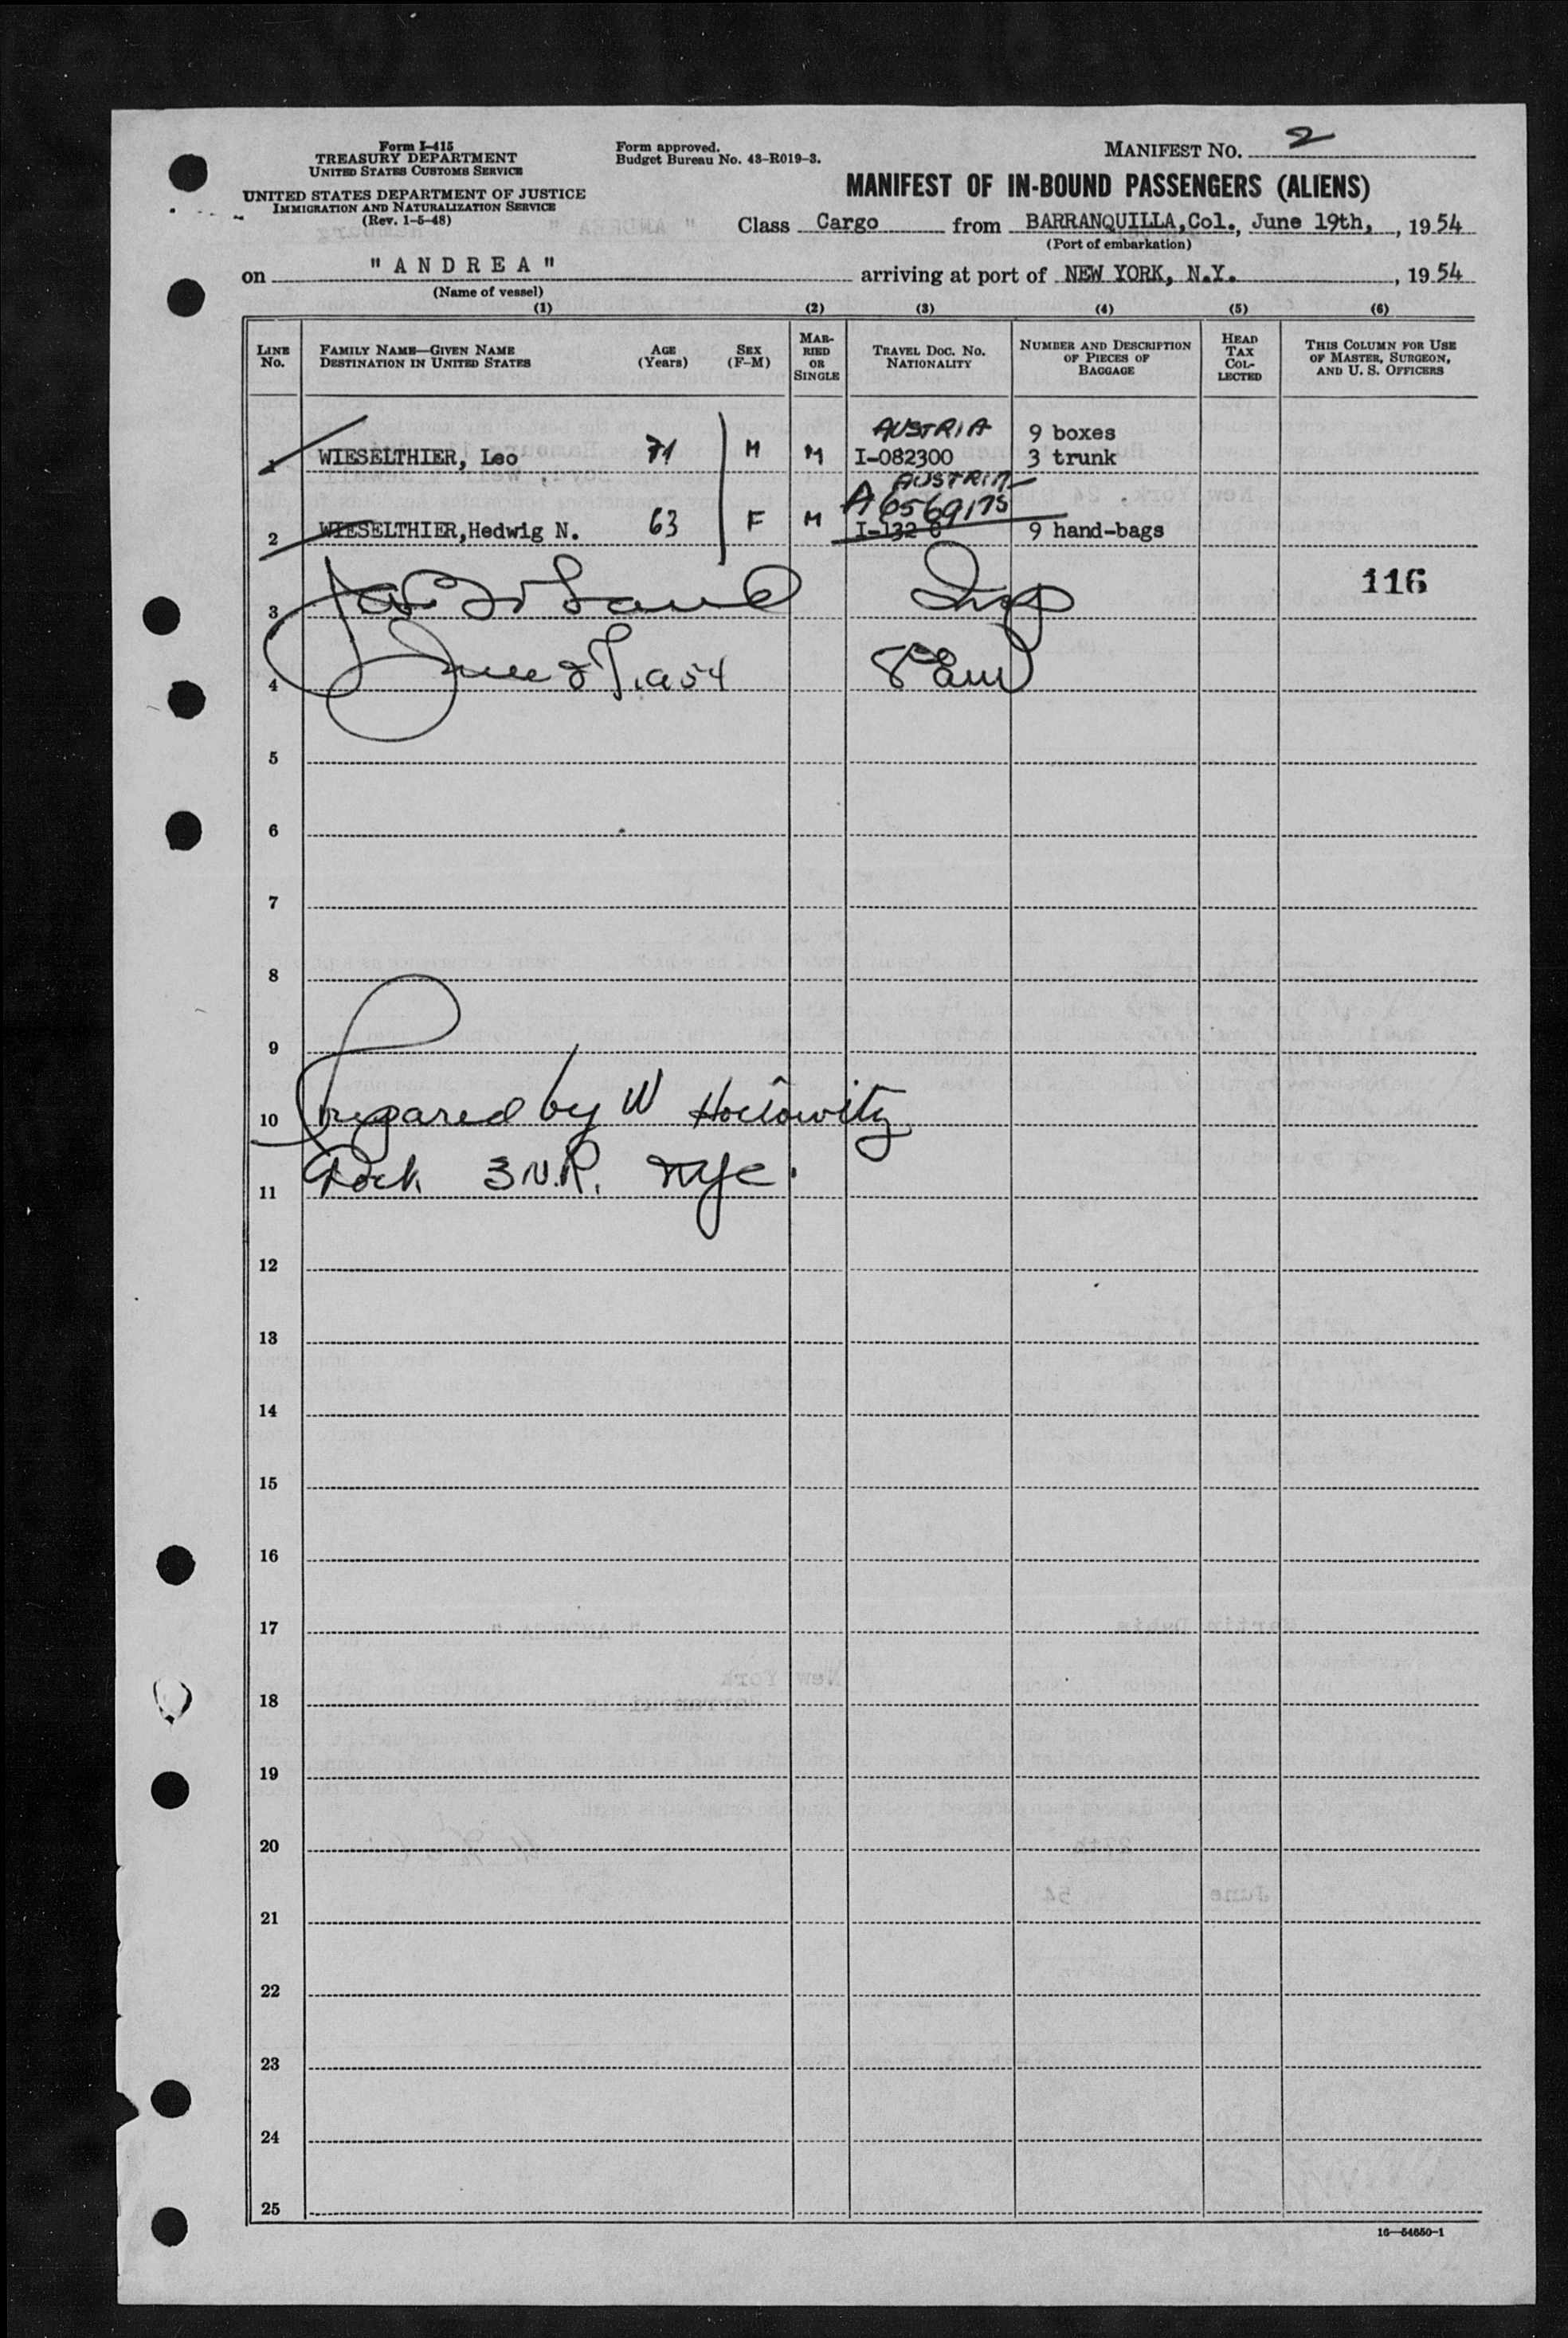 Form I-415
TREASURY DEPARTMENT
UNITED STATES CUSTOMS SERVICE
UNITED STATES DEPARTMENT OF JUSTICE
IMMIGRATION AND NATURALIZATION SERVICE
(Rev. 1-5-48)
Form approved.
Budget Bureau No. 43-R019-3.
MANIFEST NO. 2
MANIFEST OF IN-BOUND PASSENGERS (ALIENS)
Class Cargo from BARRANQUILLA, Col., June 19th, , 1954
(Port of embarkation)
on "ANDREA" arriving at port of NEW YORK, N.Y. , 1954
(Name of vessel)
(1) (2) (3) (4) (5) (6)
LINE NO. FAMILY NAME—GIVEN NAME DESTINATION IN UNITED STATES AGE (Years) SEX (F-M) MARRIED OR SINGLE TRAVEL DOC. NO. NATIONALITY NUMBER AND DESCRIPTION OF PIECES OF BAGGAGE HEAD TAX COLLECTED THIS COLUMN FOR USE OF MASTER, SURGEON, AND U. S. OFFICERS
AUSTRIA 9 boxes
1 WIESELTHIER, Leo 71 M M I-082300 3 trunk
AUSTRIA
A6569175
2 WIESELTHIER, Hedwig N. 63 F M I-132 9 hand-bags
116
3 Insp
4 June 27, 1954
5
6
7
8
9
10 Prepared by W
11 3 N.R. NYC.
12
13
14
15
16
17
18
19
20
21
22
23
24
25
16—54650-1